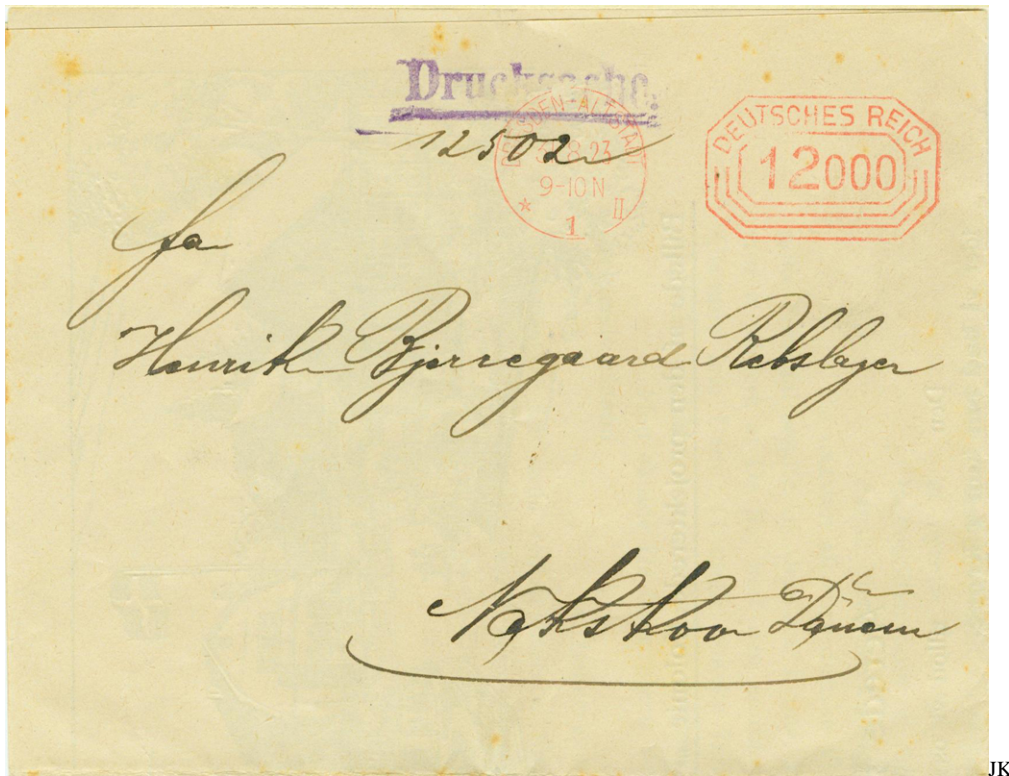 Drucksache.
12502
DRESDEN-ALTSTADT
8.23
9-10 N
* 1 II
DEUTSCHES REICH
12000
Fa
Henrik Bjerregaard Rebslager
Nakskov
JK